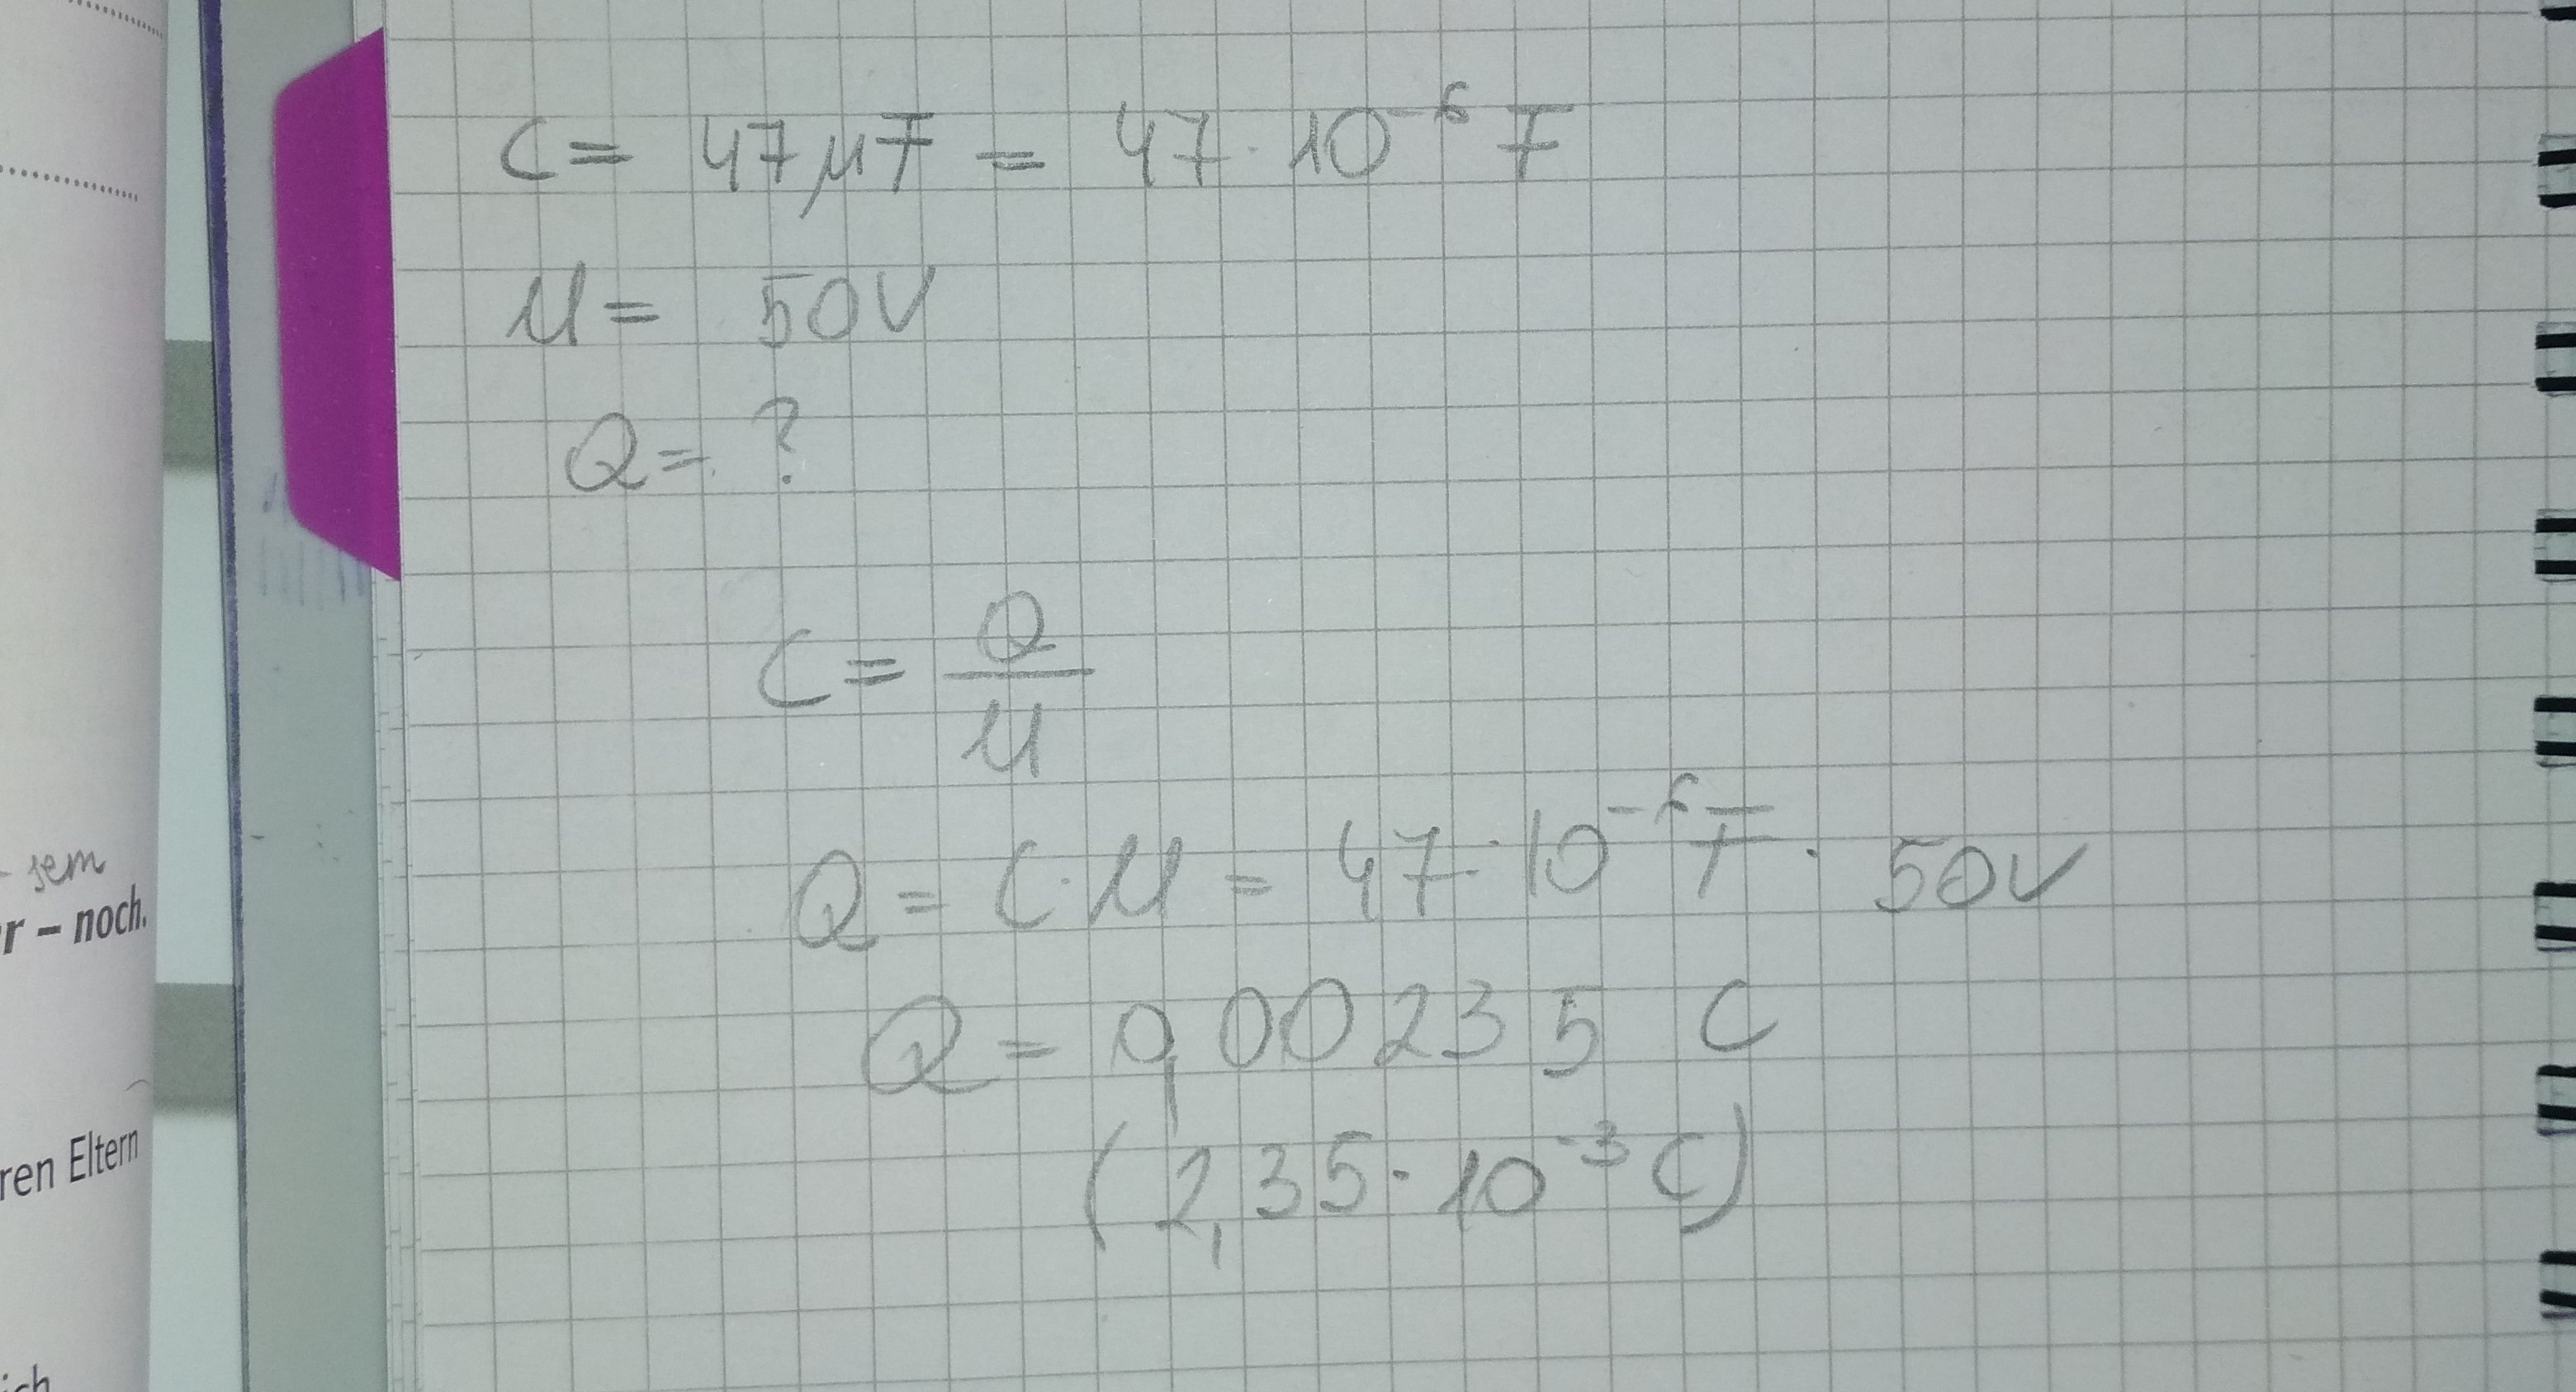 sem
r – noch.
ren Eltern
ich
C = 47 μF = 47 · 10⁻⁶ F
U = 50V
Q = ?
C = Q/U
Q = C · U = 47 · 10⁻⁶ F · 50V
Q = 0,00235 C
(2,35 · 10⁻³ C)